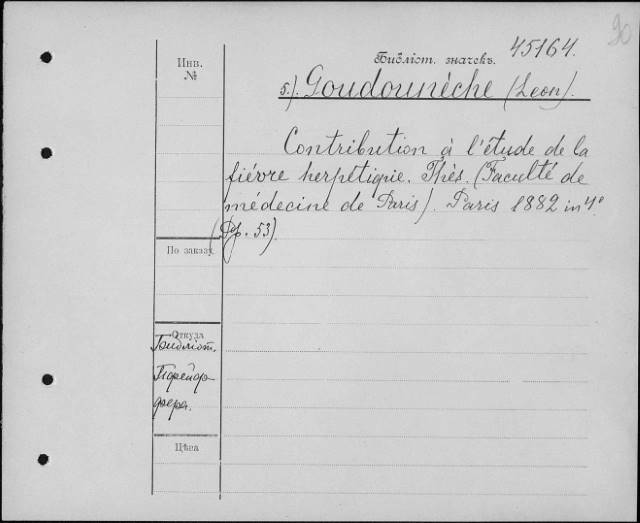 90
Инв.
№
Библіот. значекъ. 45164.
5.) Goudounèche (Leon).
Contribution à l'étude de la
fiévre herpétiqie. Thès. (Faculté de
médecine de Paris). Paris 1882 in 4°
(Pp. 53).
По заказу.
Откуда
Библіот.
Цѣна